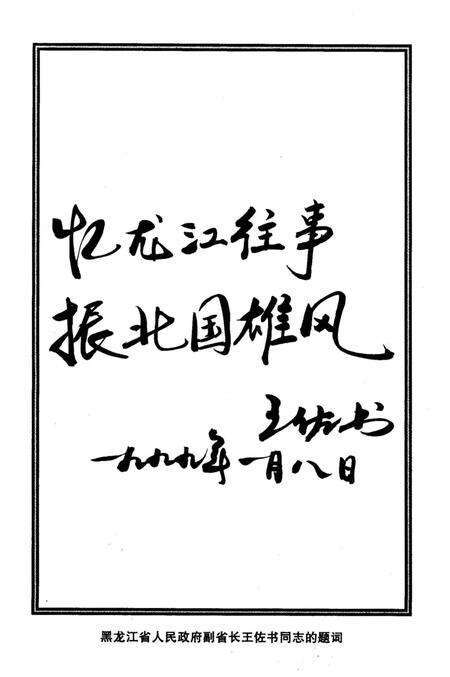 忆龙江往事
振北国雄风
王佐书
一九九九年一月八日
黑龙江省人民政府副省长王佐书同志的题词